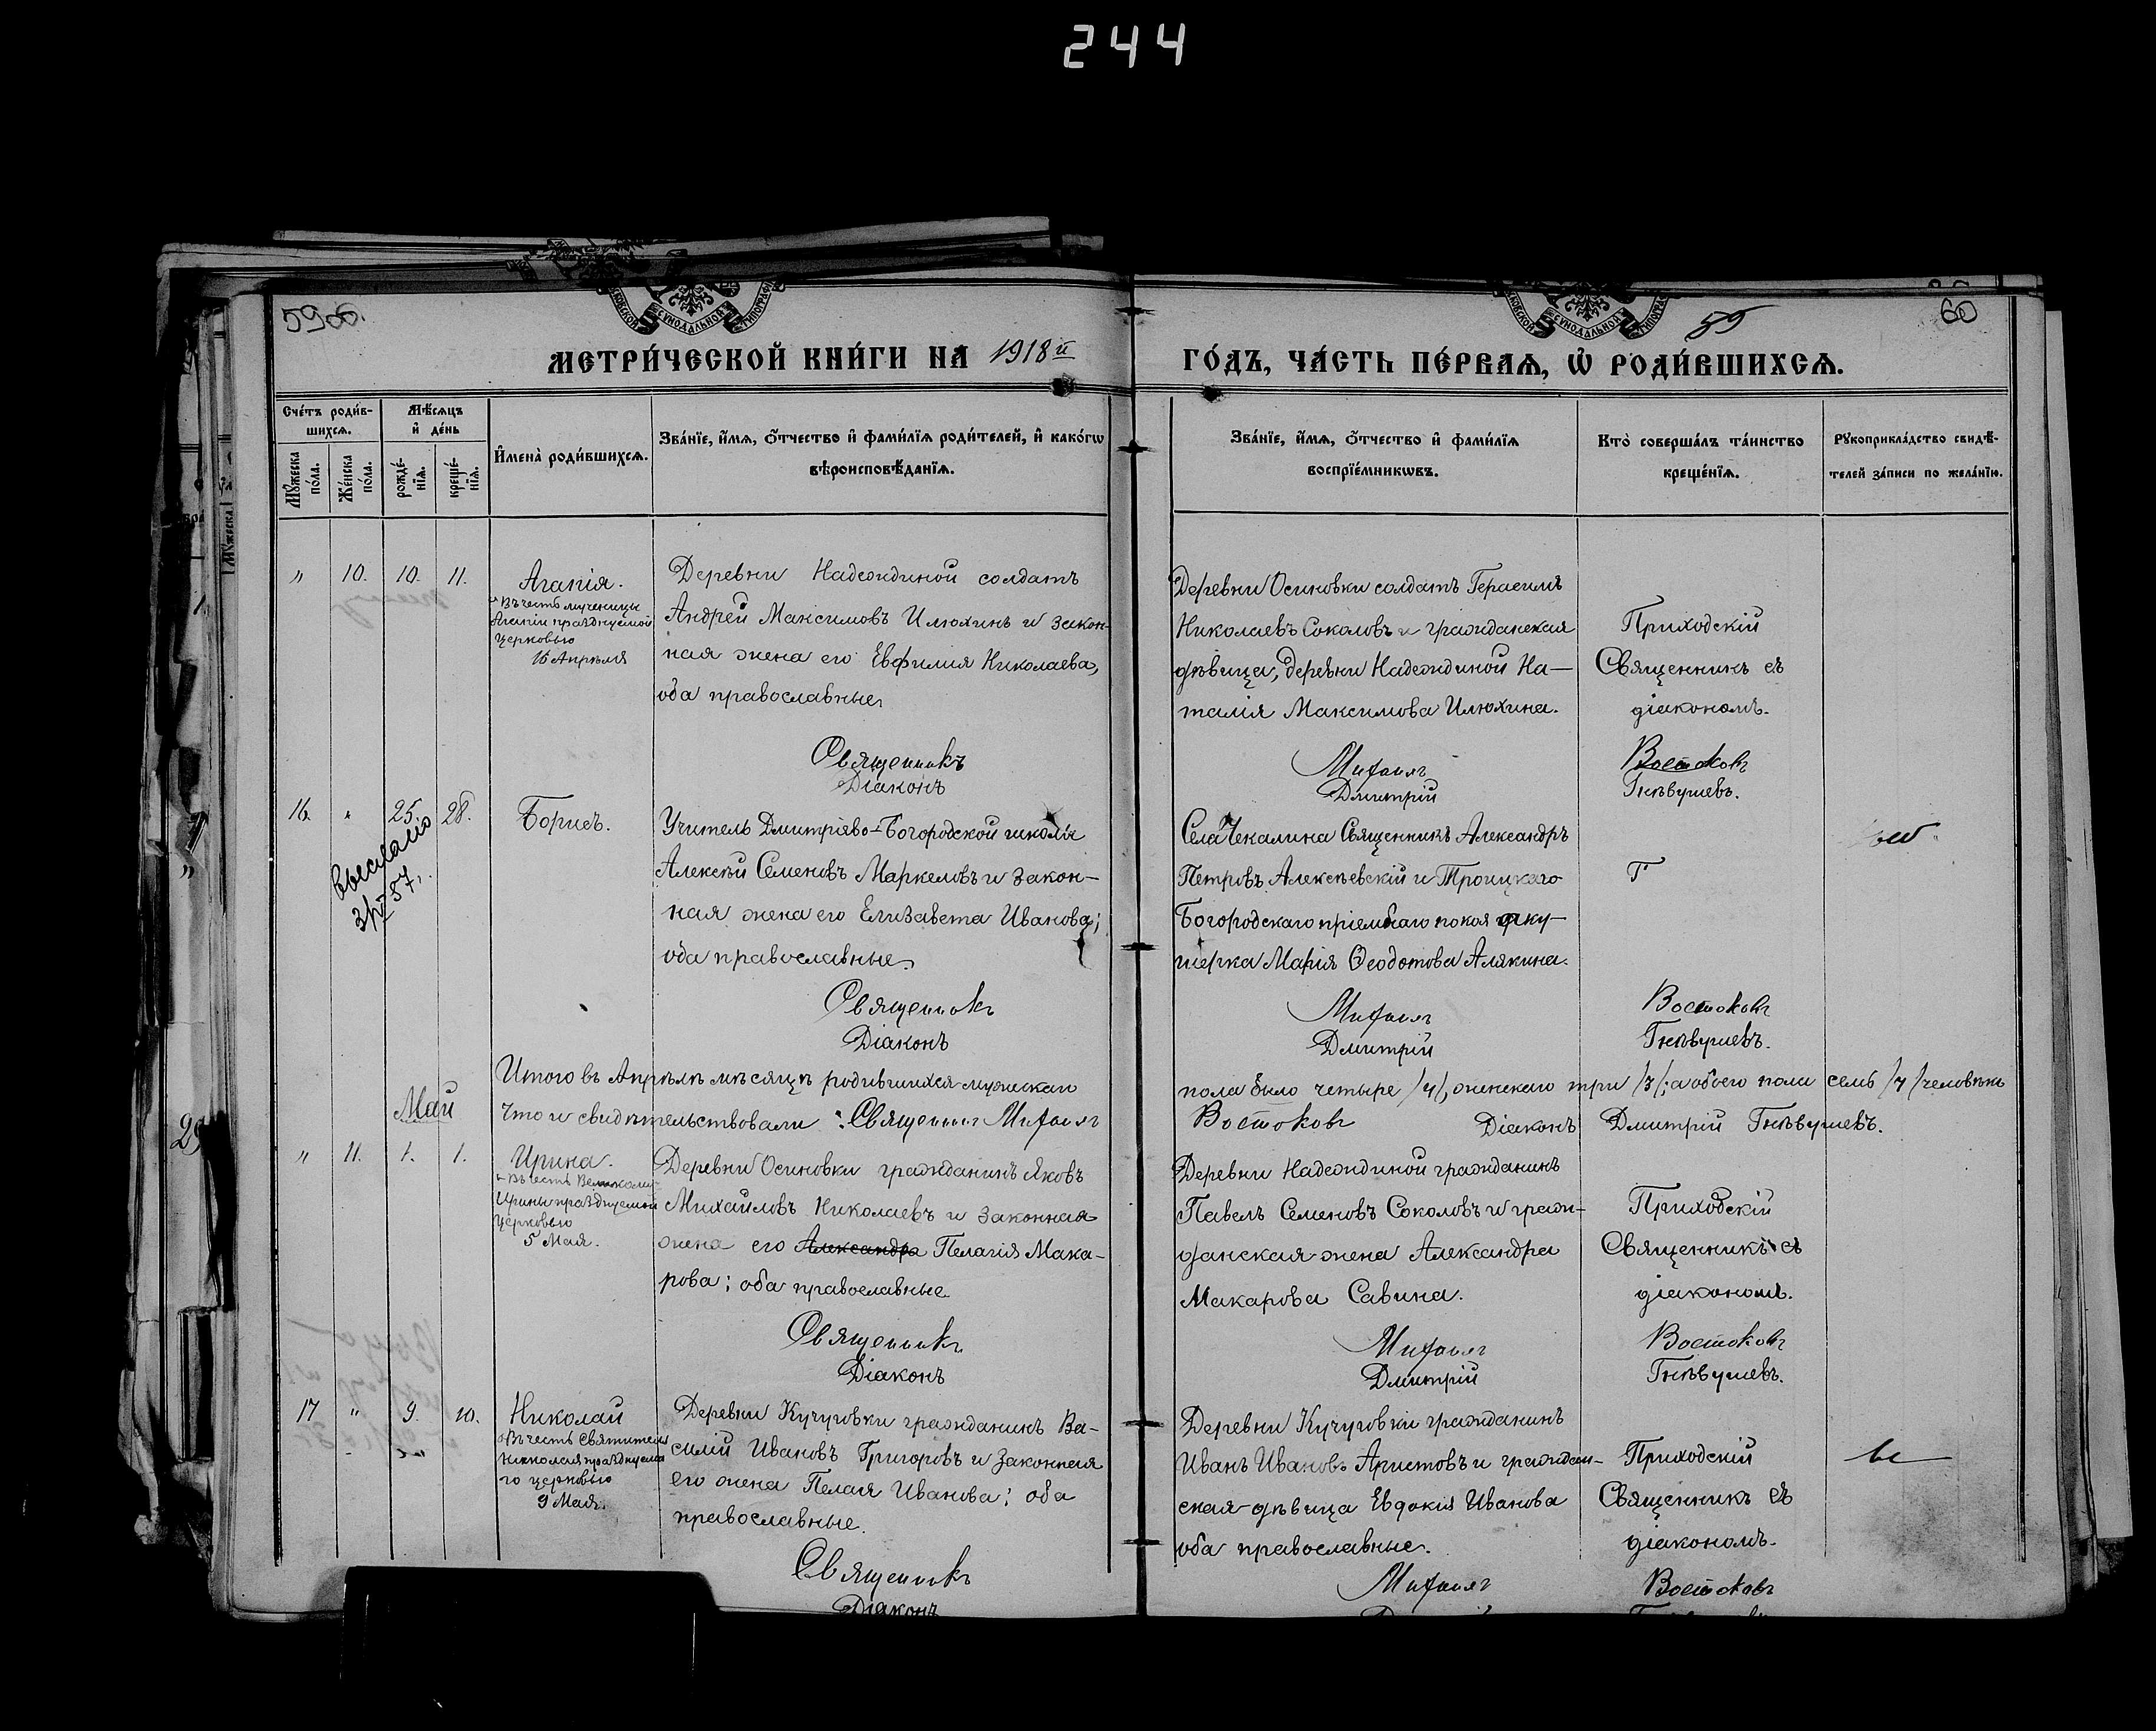 244
59об.
59
60
МЕТРИ́ЧЕСКОЙ КНИ́ГИ НА 1918й ГО́ДЪ, ЧА́СТЬ ПЕ́РВАѦ, Ѡ РОДИ́ВШИХСѦ.
Сче́тъ роди́в-
шихся.
Мѣ́сяцъ
и̂ де́нь
Мꙋ́жеска по́ла.
Же́нска по́ла.
рожде́-
нїѧ.
креще́-
нїѧ.
И̂мена̀ роди́вшихсѧ.
Зва́нїе, и̂́мѧ, ѻ̂́тчество и̂ фами́лїѧ роди́телей, и̂ како́гѡ
вѣроисповѣ́данїѧ.
Зва́нїе, и̂́мѧ, ѻ̂́тчество и̂ фами́лїѧ
воспрїе́мникѡвъ.
Кто̀ соверша́лъ та́инство
креще́нїѧ.
Рꙋкоприкла́дство свидѣ́-
телей за́писи по жела́нїю.
" 10. 10. 11.
Агапія.
Въ честь мученицы
Агапіи празднуемой
Церковью
16 Апрѣля
Деревни Надеждиной солдатъ
Андрей Максимовъ Илюхинъ и закон-
ная жена его Евфилия Николаева,
оба православные
Деревни Осиновки солдатъ Герасимъ
Николаевъ Соколовъ и гражданская
дѣвица, деревни Надеждиной На-
талія Максимова Илюхина.
Приходскій
Священникъ съ
діакономъ.
Священникъ Михаилъ Востоковъ
Діаконъ Дмитрій Гнѣвушевъ.
16. " 25. 28.
выслано
Борисъ.
Учитель Дмитріево-Богородской школы
Алексѣй Семеновъ Маркеловъ и закон-
ная жена его Елизавета Иванова;
оба православные
Села Чекалина Священникъ Александръ
Петровъ Алексѣевскій и Троицкаго
Богородскаго пріемнаго покоя аку-
шерка Марія Ѳеодотова Алякина.
Священникъ Михаилъ Востоковъ
Діаконъ Дмитрій Гнѣвушевъ.
Итого въ Апрѣлѣ мѣсяцѣ родившихся мужескаго пола было четыре /4/, женскаго три /3/; а обоего пола семь /7/ человѣкъ
Что и свидѣтельствовали: Священникъ Михаилъ Востоковъ Діаконъ Дмитрій Гнѣвушевъ.
Май
" 11. 1. 1.
Ирина.
Въ честь Великому-
Ирины празднуемой
Церковью
5 Мая.
Деревни Осиновки гражданинъ Яковъ
Михайловъ Николаевъ и законная
жена его Александра Пелагія Мака-
рова; оба православные
Деревни Надеждиной гражданинъ
Павелъ Семеновъ Соколовъ и граж-
данская жена Александра
Макарова Савина.
Приходскій
Священникъ съ
діакономъ.
Священникъ Михаилъ Востоковъ
Діаконъ Дмитрій Гнѣвушевъ.
17 " 9. 10.
Николай
Въ честь Святителя
Николая празднуема
го церковью
9 Мая.
Деревни Кучуговки гражданинъ Ва-
силій Ивановъ Григоровъ и законная
его жена Пелагя Иванова; оба
православные.
Деревни Кучуговки гражданинъ
Иванъ Ивановъ Аристовъ и граждан-
ская дѣвица Евдокія Иванова
оба православные.
Приходскій
Священникъ съ
діакономъ.
Священникъ Михаилъ Востоковъ
Діаконъ